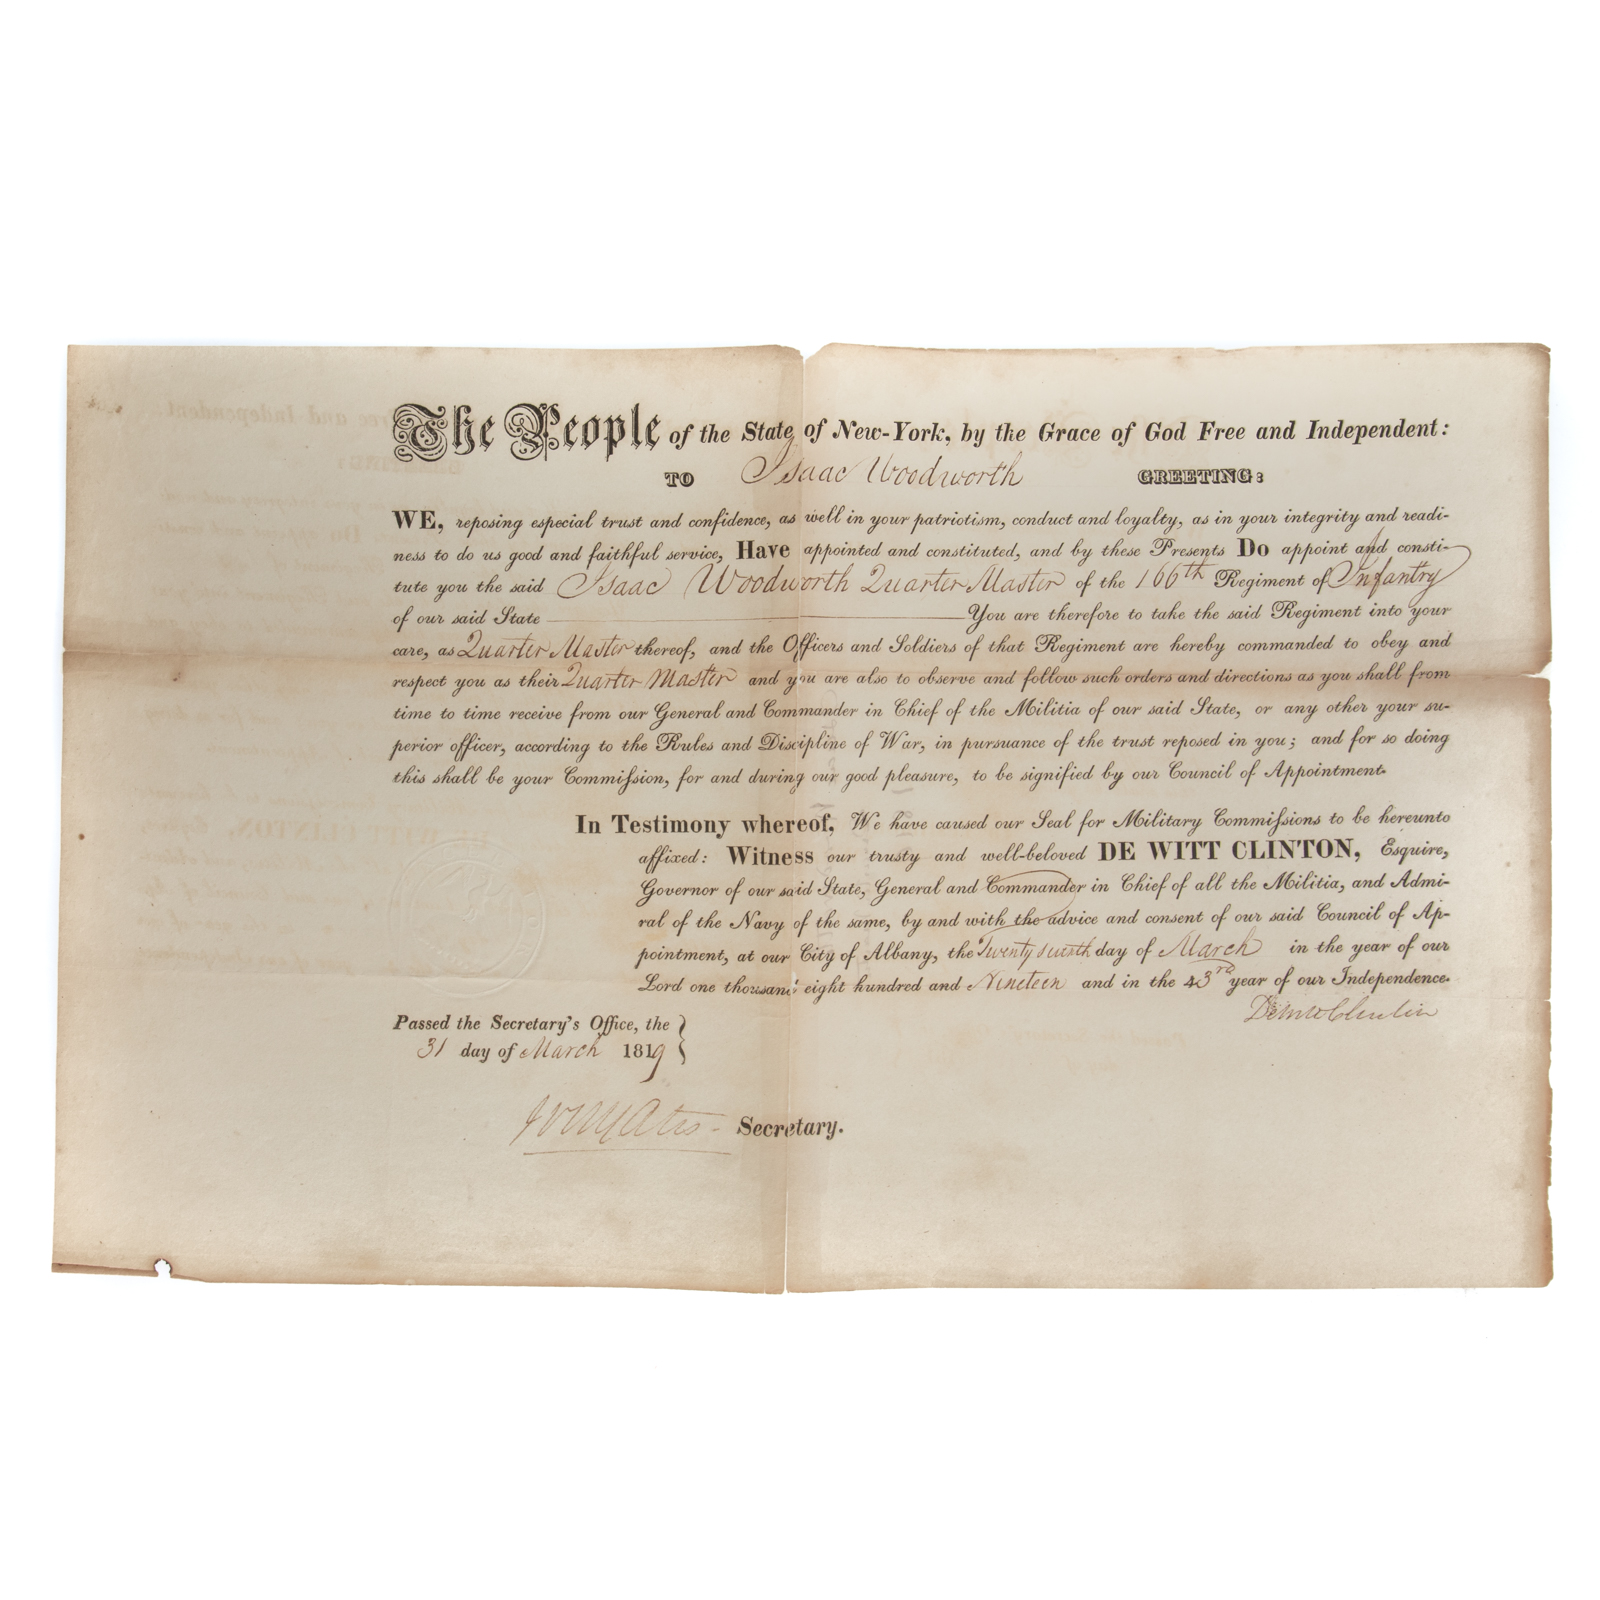 The People of the State of New-York, by the Grace of God Free and Independent:
TO Isaac Woodworth GREETING:
WE, reposing especial trust and confidence, as well in your patriotism, conduct and loyalty, as in your integrity and readi-
ness to do us good and faithful service, Have appointed and constituted, and by these Presents Do appoint and consti-
tute you the said Isaac Woodworth Quarter Master of the 166th Regiment of Infantry
of our said State You are therefore to take the said Regiment into your
care, as Quarter Master thereof, and the Officers and Soldiers of that Regiment are hereby commanded to obey and
respect you as their Quarter Master and you are also to observe and follow such orders and directions as you shall from
time to time receive from our General and Commander in Chief of the Militia of our said State, or any other your su-
perior officer, according to the Rules and Discipline of War, in pursuance of the trust reposed in you; and for so doing
this shall be your Commiſsion, for and during our good pleasure, to be signified by our Council of Appointment.
In Testimony whereof, We have caused our Seal for Military Commiſsions to be hereunto
affixed: Witness our trusty and well-beloved DE WITT CLINTON, Esquire,
Governor of our said State, General and Commander in Chief of all the Militia, and Admi-
ral of the Navy of the same, by and with the advice and consent of our said Council of Ap-
pointment, at our City of Albany, the Twenty seventh day of March in the year of our
Lord one thousand eight hundred and Nineteen and in the 43rd year of our Independence.
DeWitt Clinton
Passed the Secretary's Office, the
31 day of March 1819
Secretary.